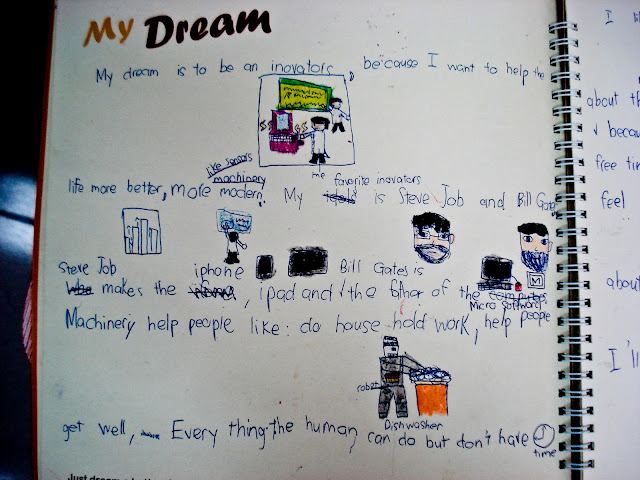 My Dream
My dream is to be an inovators because I want to help the
me
like sensors
machinery
favorite inovators
life more better, more modern. My idols is Steve Job and Bill Gates
Steve Job iphone Bill Gates is
Who makes the , ipad and the father of the computer
Micro software
Machinery help people like: do house hold work, help people
robot
Dishwasher
get well, Every thing the human can do but don't have
time
Just dream
I
about th
becau
free tim
feel
about
I'll